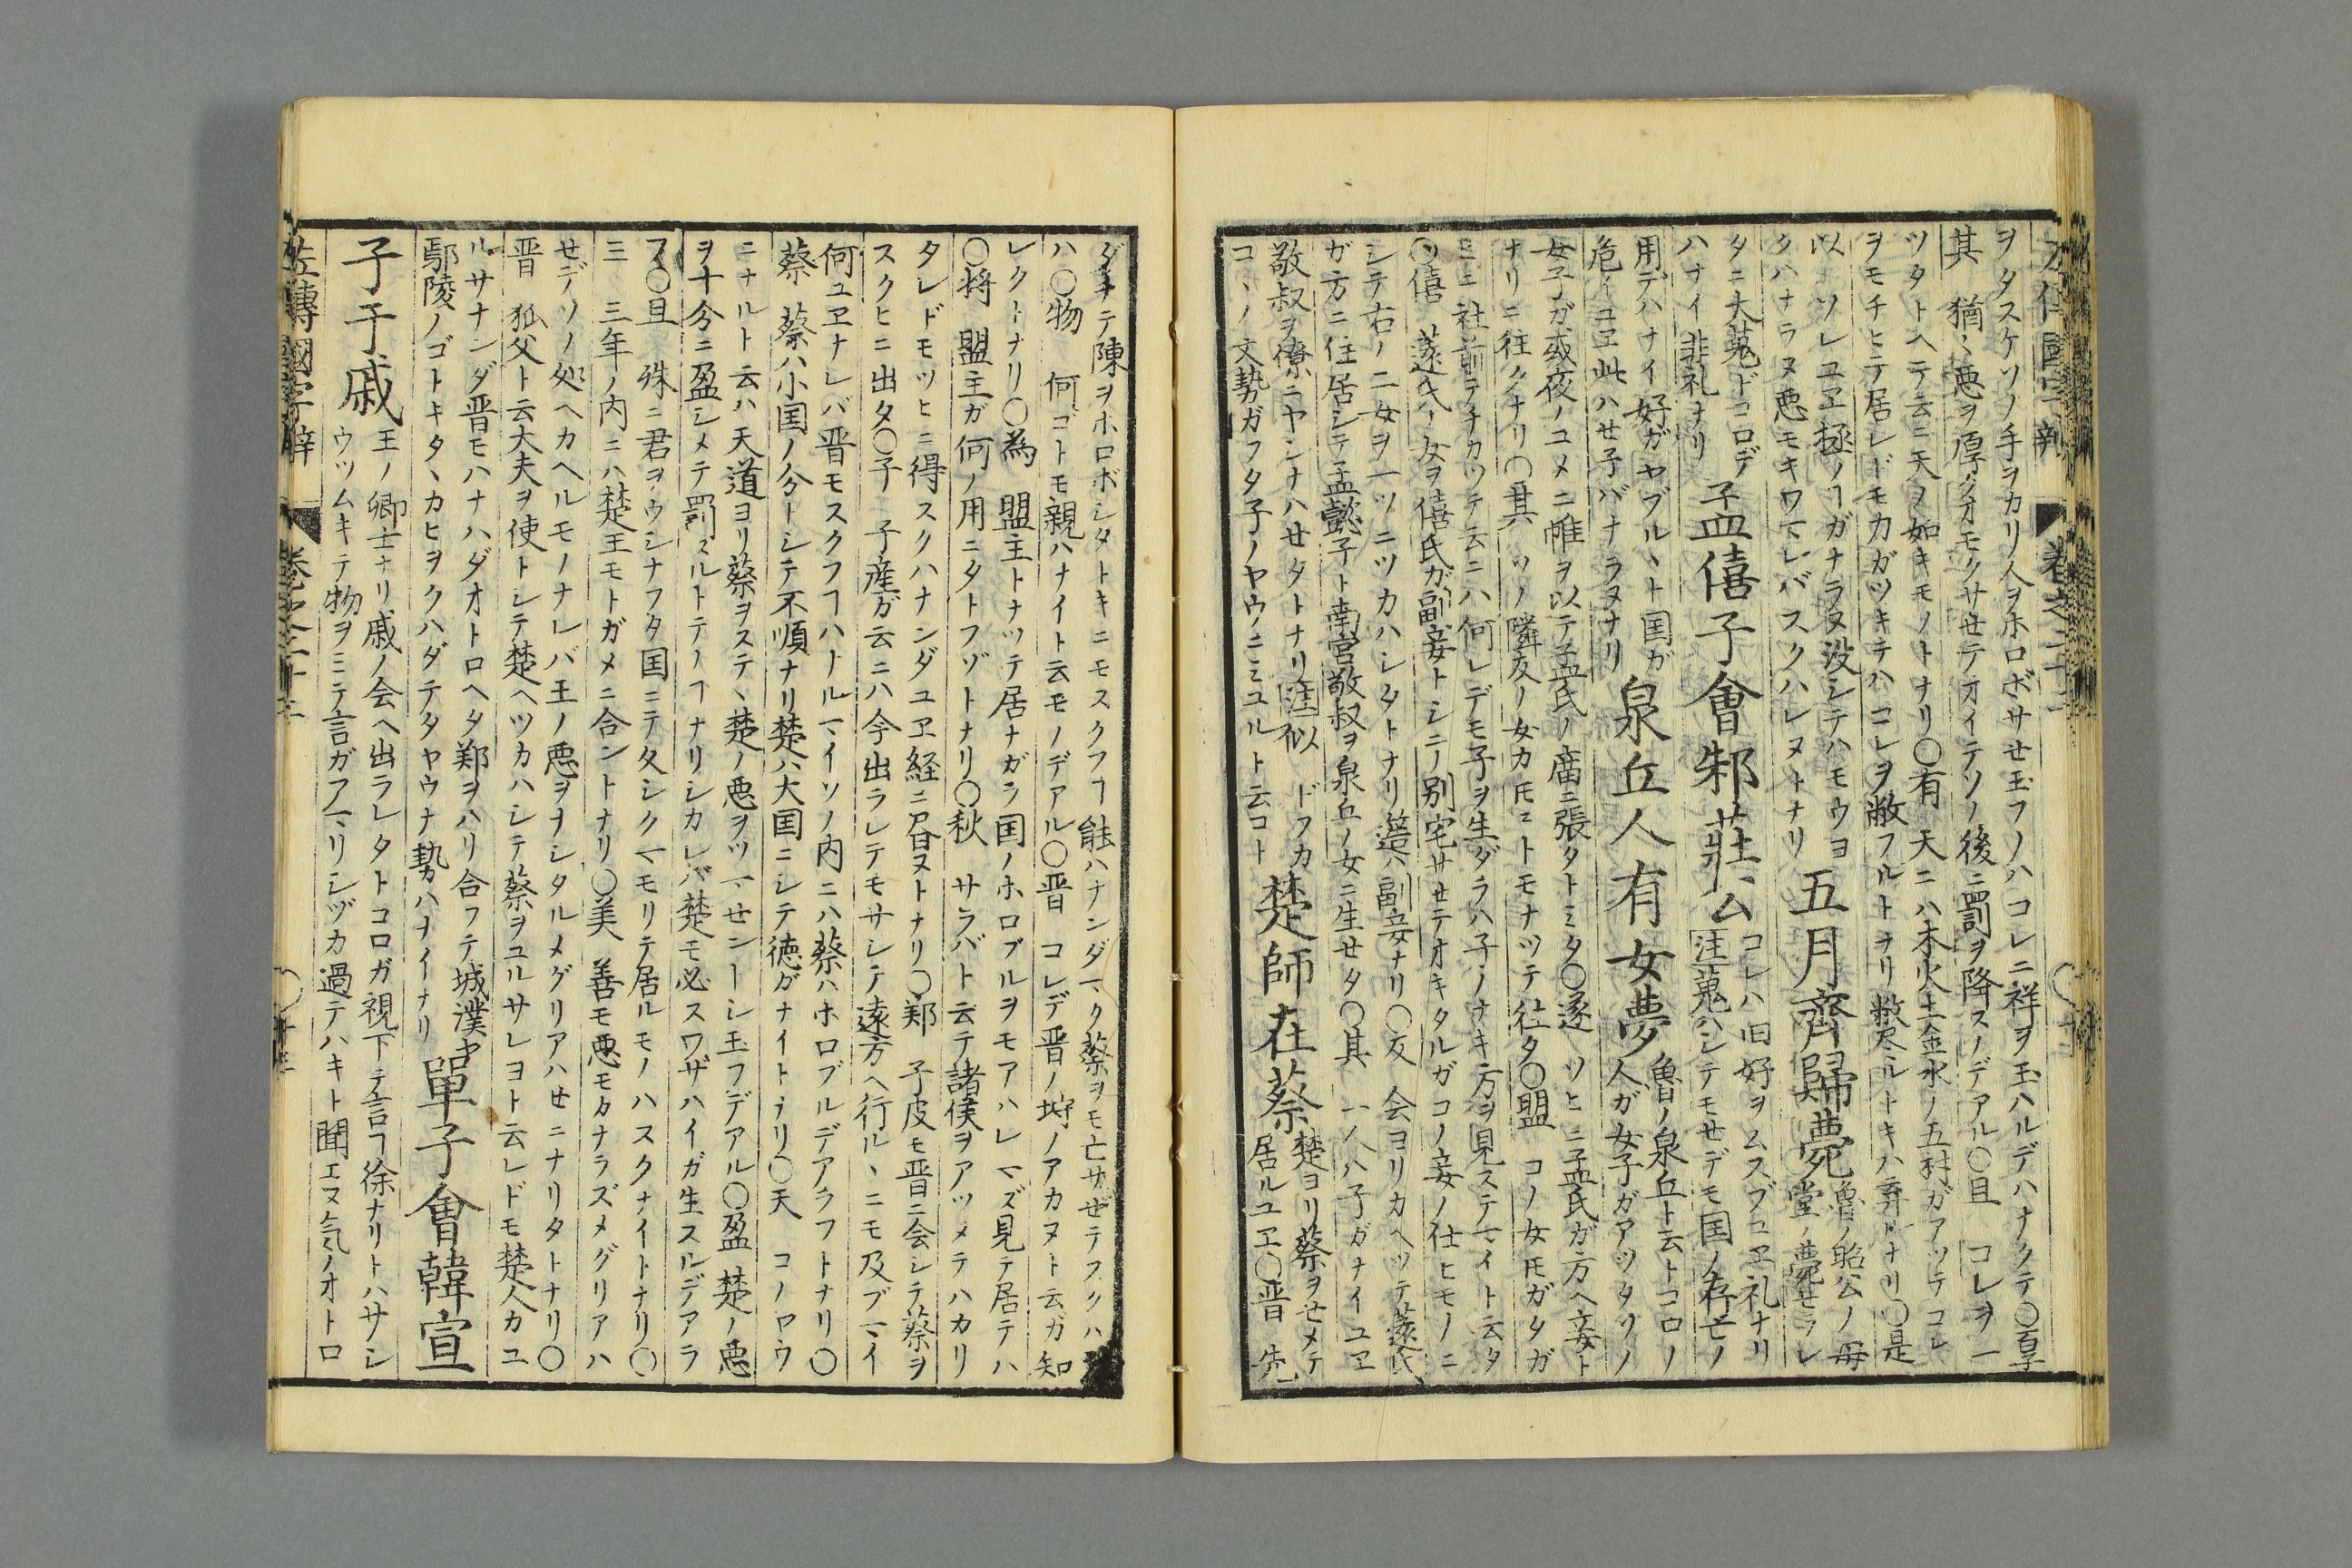 ヲタスケソノ手ヲカリ人ヲホロボサせ玉フノハコレニ祥ヲ玉ハルデハナクテ〇
其 猶ヽ悪ヲ厚クオモクサせテオイテソノ後ニ罰ヲ降スノデアル〇且 コレヲ一
ツタトヘテ云ニ天ヲ如キモノトナリ〇有 天ニハ木火土金水ノ五材ガアツテコレ
ヲモチヒテ居レドモ力ガツキテハコレヲ敝フルトナリ 弊尽ルトキハ棄ルナリ〇是
以 ソレユヱ極ノヿガナラヌ没シテハモウヨ
クハナラヌ悪モキワマレバスクハレヌトナリ
五月齊歸薨
魯ノ昭公ノ毋
堂ノ薨せラレ
タニ大蒐ドコロデ
ハナイ非礼ナリ
孟僖子會邾莊公
コレハ旧好ヲムスブユヱ礼ナリ
注蒐ハシテモせデモ国ノ存亡ノ
用デハナイ好ガヤブルヽト国ガ
危イユヱ此ハせ子バナラヌナリ
泉丘人有女夢
魯ノ泉丘ト云トコロノ
人ガ女子ガアツタソノ
女子ガ或夜ノユメニ帷ヲ以テ孟氏ノ廟ニ張タトミタ〇遂 ツヒニ孟氏ガ方ヘ妾ト
ナリニ往クナリ〇其 ソノ隣友ノ女カ𪜈ニトモナツテ往タ〇盟 コノ女𪜈ガタガ
ヒニ社前テチカツテ云ニハ何レデモ子ヲ生ダラハ子ノナキ方ヲ見ステマイト云タ
〇僖 薳氏ノ女ヲ僖氏ガ副妾トシテ別宅サせテオキタルガコノ妾ノ仕ヒモノニ
シテ右ノ二女ヲ一ツニツカハシタトナリ 簉ハ副妾ナリ〇反 会ヨリカヘツテ薳氏
ガ方ニ住居シテ孟懿子ト南宮敬叔ヲ泉丘ノ女ニ生せタ〇其 一人ハ子ガナイユヱ
敬叔ヲ僚ニヤシナハせタトナリ注似 ドフカ
コヽノ文勢ガフタ子ノヤウニミユルト云コト
楚師在蔡
楚ヨリ蔡ヲせメテ
居ルユヱ〇晋 先
ダチテ陳ヲホロボシタトキニモスクフヿ能ハナンダマタ蔡ヲモ亡サせテスクハ
ハ〇物 何ゴトモ親ハナイト云モノデアル〇晋 コレデ晋ノ埒ノアカヌト云ガ知
レクトナリ〇為 盟主トナツテ居ナガラ国ノホロブルヲモアハレマズ見テ居テハ
〇将 盟主ガ何ノ用ニタトフゾトナリ〇秋 サラバト云テ諸侯ヲアツメテハカリ
タレドモツヒニ得スクハナンダユヱ経ニ不書ヌトナリ〇郑 子皮モ晋ニ会シテ蔡ヲ
スクヒニ出タ〇子 子産ガ云ニハ今出ラレテモサシテ遠方ヘ行ルヽニモ及ブマイ
何ユヱナレバ晋モスクフヿハナルマイソノ内ニハ蔡ハホロブルデアラフトナリ〇
蔡 蔡ハ小国ノ分トシテ不順ナリ楚ハ大国ニシテ徳ガナイトナリ〇天 コノヤウ
ニナルト云ハ天道ヨリ蔡ヲステヽ楚ノ悪ヲツマせントシ玉フデアル〇盈 楚ノ悪
ヲ十分ニ盈シメテ罰スルトテノヿナリシカレバ楚モ必スワザハイガ生スルデアラ
フ〇且 殊ニ君ヲウシナフタ国ニテ久シクマモリテ居ルモノハスクナイトナリ〇
三 三年ノ内ニハ楚王モトガメニ合ントナリ〇美 善モ悪モカナラズメグリアハ
せデソノ処ヘカヘルモノナレバ王ノ悪ヲナシタルメグリアハせニナリタトナリ〇
晋 狐父ト云大夫ヲ使トシテ楚ヘツカハシテ蔡ヲユルサレヨト云レドモ楚人カユ
ルサナンダ晋モハナハダオトロヘタ郑ヲハリ合フテ城濮ヤ
鄢陵ノゴトキタヽカヒヲクハダテタヤウナ勢ハナイナリ
單子會韓宣
子于戚
王ノ卿士ナリ戚ノ会ヘ出ラレタトコロガ視下テ言ヿ徐ナリトハサシ
ウツムキテ物ヲミテ言ガアマリシヅカ過テハキト聞エヌ気ノオトロ
左傳國字辯 巻之二十三